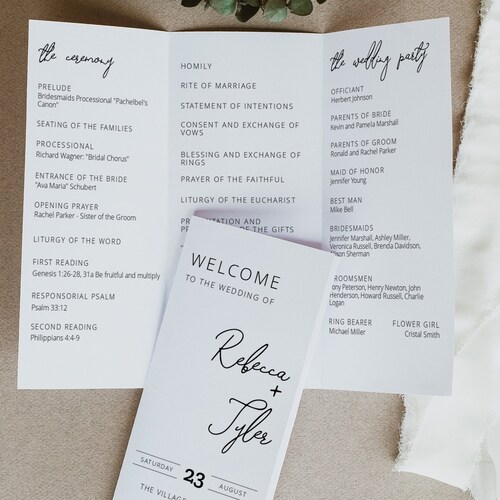 the ceremony
PRELUDE
Bridesmaids Processional "Pachelbel's
Canon"
SEATING OF THE FAMILIES
PROCESSIONAL
Richard Wagner: "Bridal Chorus"
ENTRANCE OF THE BRIDE
"Ava Maria" Schubert
OPENING PRAYER
Rachel Parker - Sister of the Groom
LITURGY OF THE WORD
FIRST READING
Genesis 1:26-28, 31a Be fruitful and multiply
RESPONSORIAL PSALM
Psalm 33:12
SECOND READING
Philippians 4:4-9
HOMILY
RITE OF MARRIAGE
STATEMENT OF INTENTIONS
CONSENT AND EXCHANGE OF
VOWS
BLESSING AND EXCHANGE OF
RINGS
PRAYER OF THE FAITHFUL
LITURGY OF THE EUCHARIST
PRESENTATION AND
OF THE GIFTS
the wedding party
OFFICIANT
Herbert Johnson
PARENTS OF BRIDE
Kevin and Pamela Marshall
PARENTS OF GROOM
Ronald and Rachel Parker
MAID OF HONOR
Jennifer Young
BEST MAN
Mike Bell
BRIDESMAIDS
Jennifer Marshall, Ashley Miller,
Veronica Russell, Brenda Davidson,
Alison Sherman
GROOMSMEN
Tony Peterson, Henry Newton, John
Henderson, Howard Russell, Charlie
Logan
RING BEARER FLOWER GIRL
Michael Miller Cristal Smith
WELCOME
TO THE WEDDING OF
Rebecca
+
Tyler
SATURDAY 23 AUGUST
THE VILLAGE